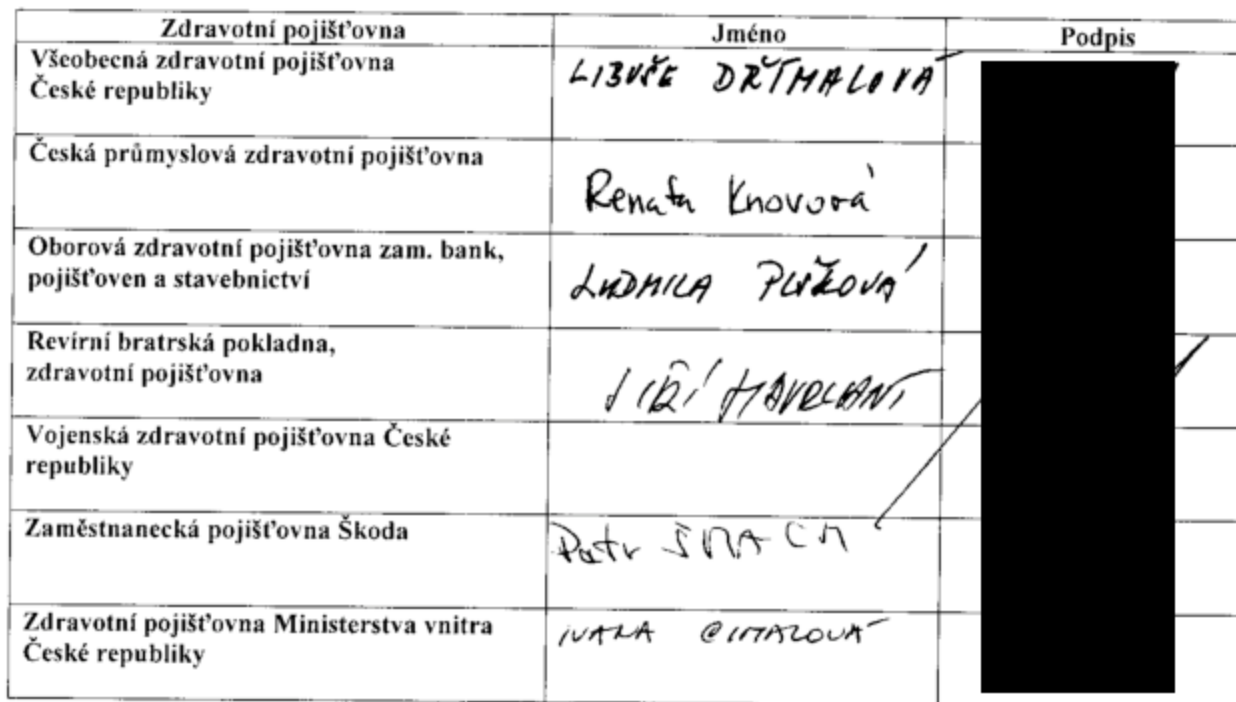 Zdravotní pojišťovna Jméno Podpis
Všeobecná zdravotní pojišťovna
České republiky
LIBUŠE DRŤMALOVÁ
Česká průmyslová zdravotní pojišťovna
Renata Knovorá
Oborová zdravotní pojišťovna zam. bank,
pojišťoven a stavebnictví
LUDMILA PLŠKOVÁ
Revírní bratrská pokladna,
zdravotní pojišťovna
JIŘÍ
Vojenská zdravotní pojišťovna České
republiky
Zaměstnanecká pojišťovna Škoda
Petr
Zdravotní pojišťovna Ministerstva vnitra
České republiky
IVANA